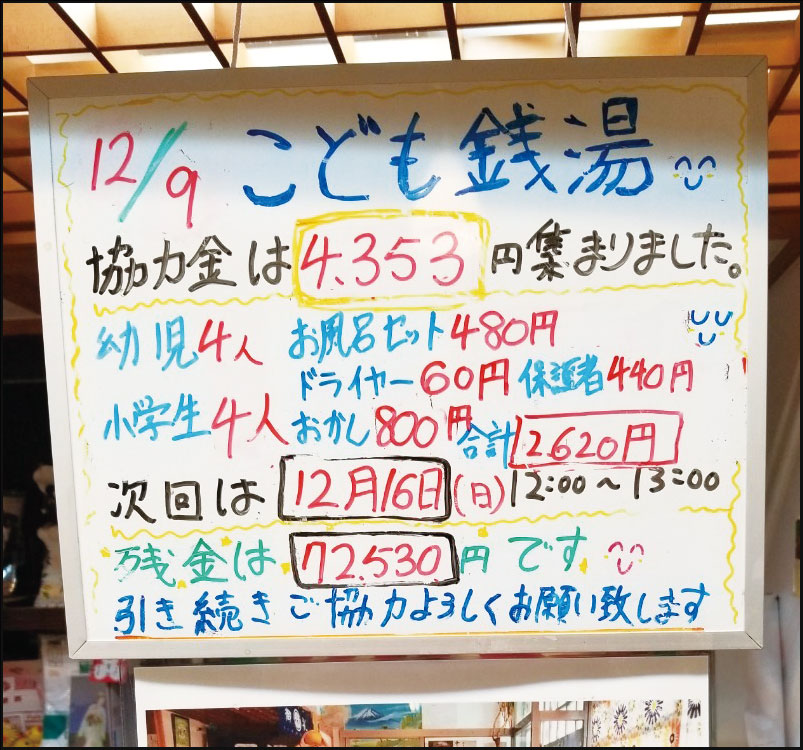 12/9 こども銭湯
協力金は4.353円集まりました。
幼児4人 お風呂セット480円
ドライヤー60円 保護者440円
小学生4人 おかし800円 合計2620円
次回は12月16日(日)12:00~13:00
残金は72.530円です
引き続きご協力よろしくお願い致します